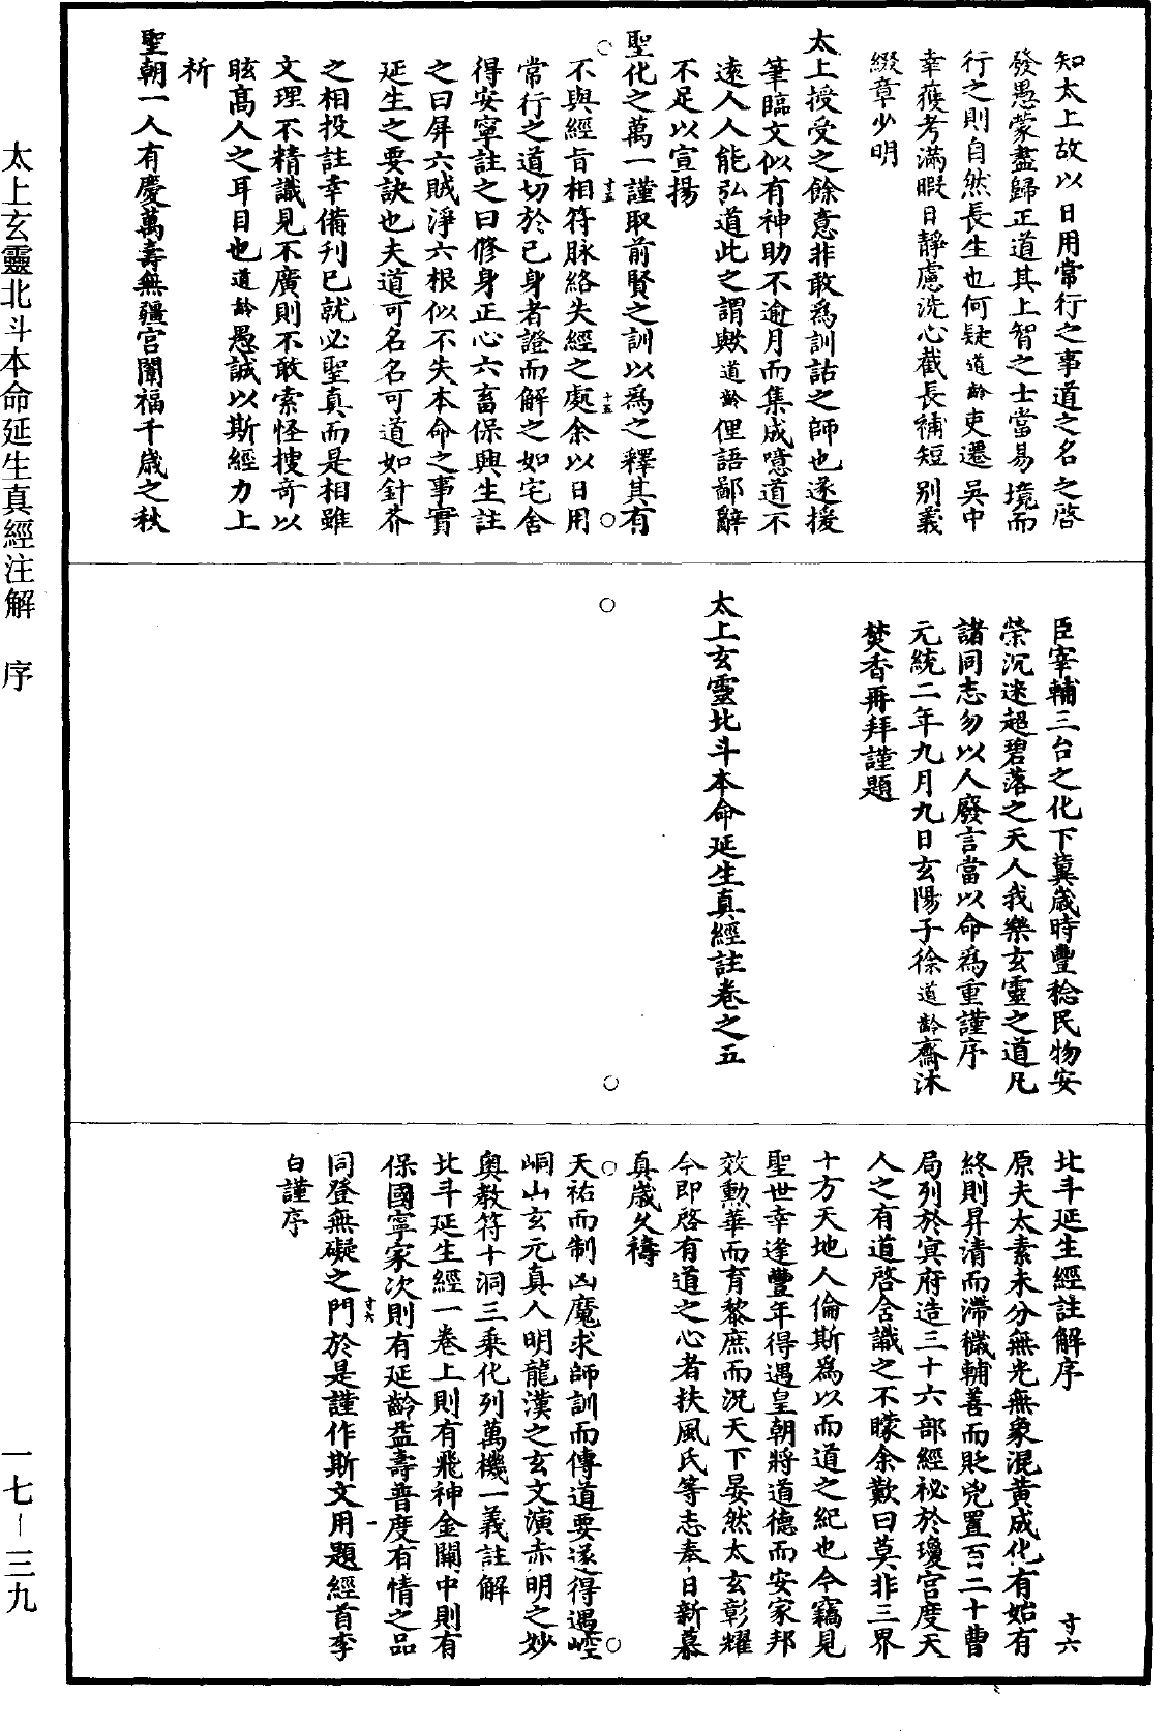 知太上故以日用常行之事道之名之啓
發愚蒙盡歸正道其上智之士當易境而
行之則自然長生也何疑道齡吏遷吳中
幸獲考滿暇日靜慮洗心截長補短別義
綴章少明
太上授受之餘意非敢爲訓詁之師也遂援
筆臨文似有神助不逾月而集成噫道不
遠人人能弘道此之謂歟道齡俚語鄙辭
不足以宣揚
聖化之萬一謹取前賢之訓以爲之釋其有
不與經旨相符脉絡失經之處余以日用
常行之道切於己身者證而解之如宅舍
得安寧註之曰修身正心六畜保興生註
之曰屏六賊淨六根似不失本命之事實
延生之要訣也夫道可名名可道如針芥
之相投註幸備刊已就必聖真而是相雖
文理不精識見不廣則不敢索怪搜奇以
眩高人之耳目也道齡愚誠以斯經力上
祈
聖朝一人有慶萬壽無疆宮闈福千歲之秋
臣宰輔三台之化下冀歲時豐稔民物安
榮沉迷超碧落之天人我樂玄靈之道凡
諸同志勿以人廢言當以命爲重謹序
元統二年九月九日玄陽子徐道齡齋沐
焚香再拜謹題
太上玄靈北斗本命延生真經註卷之五
北斗延生經註解序
十六
原夫太素未分無光無象混黃成化有始有
終則昇清而滯穢輔善而貶兇置百二十曹
局列於冥府造三十六部經祕於瓊宮度天
人之有道啓含識之不矇余歎曰莫非三界
十方天地人倫斯爲以而道之紀也今竊見
聖世幸逢豐年得遇皇朝將道德而安家邦
效勳華而育黎庶而況天下晏然太玄彰耀
今即啓有道之心者扶風氏等志奉日新慕
真歲久禱
天祐而制凶魔求師訓而傳道要遂得遇崆
峒山玄元真人明龍漢之玄文演赤明之妙
奥教符十洞三乘化列萬機一義註解
北斗延生經一卷上則有飛神金闕中則有
保國寧家次則有延齡益壽普度有情之品
同登無礙之門於是謹作斯文用題經首李
白謹序
太上玄靈北斗本命延生真經注解　序
一七－三九